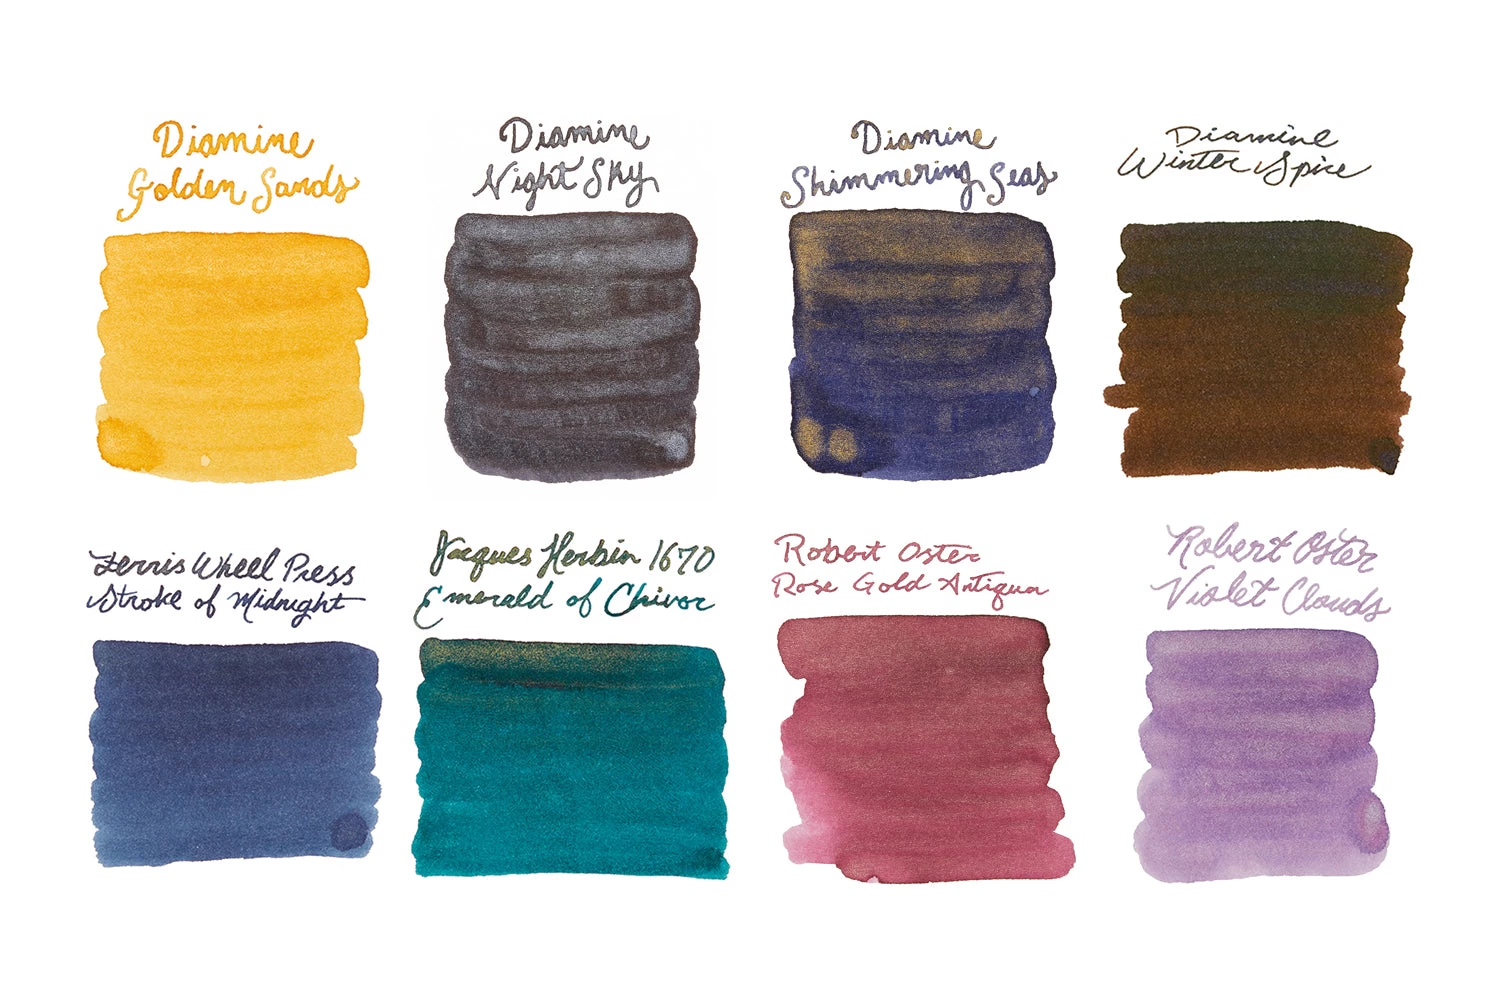 Diamine
Golden Sands
Diamine
Night Sky
Diamine
Shimmering Seas
Diamine
Winter Spice
Ferris Wheel Press
Stroke of Midnight
Jacques Herbin 1670
Emerald of Chivor
Robert Oster
Rose Gold Antiqua
Robert Oster
Violet Clouds